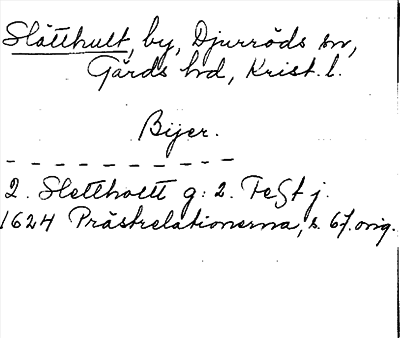 Slätthult, by, Djurröds sn,
Gärds hd, Krist. l.
Bijer.
2. Slettholtt g: 2. Fe St j.
1624 Prästrelationerna, s. 67. orig.